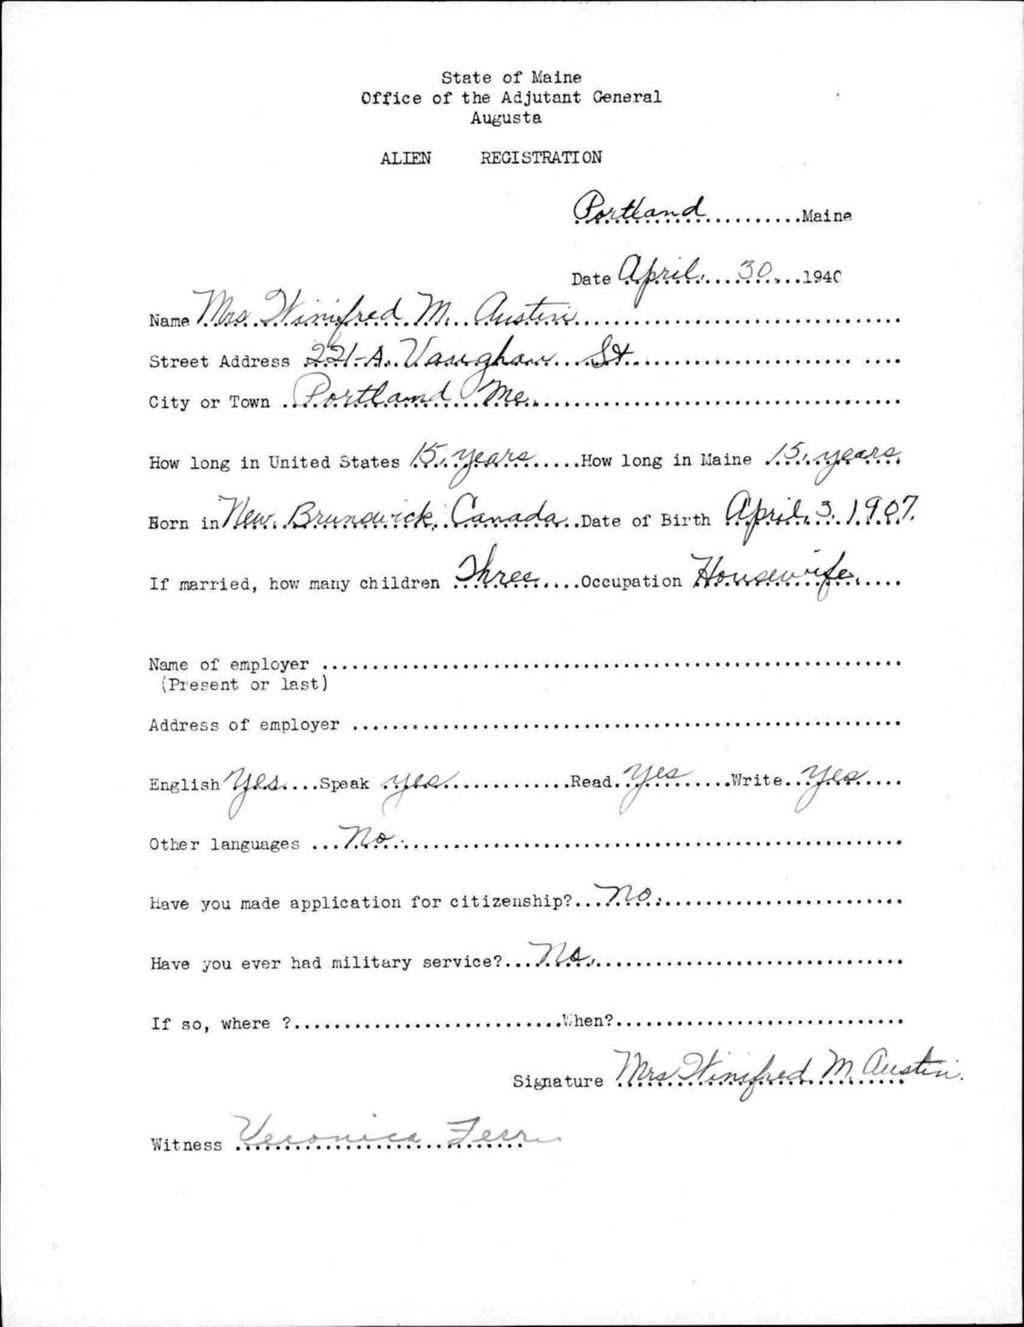 State of Maine
Office of the Adjutant General
Augusta
ALIEN REGISTRATION
Portland...........Maine
Date April....30....1940
Name Mrs Winifred M. Austin
Street Address 221-A. Vaughan St.
City or Town Portland Me.
How long in United States 15 years.....How long in Maine 15 years
Born in New Brunswick, Canada..Date of Birth April 3, 1907.
If married, how many children Three.....Occupation Housewife
Name of employer
(Present or last)
Address of employer
English Yes....Speak yes.............Read Yes......Write Yes....
Other languages ...No.
Have you made application for citizenship?...No.
Have you ever had military service?...No.
If so, where ?...........................When?.............................
Signature Mrs Winifred M. Austin.
Witness Veronica